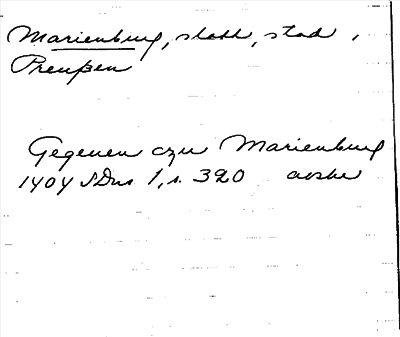 Marienburg, slott, stad,
Preußen
Gegeuen czu Marienburg
1404 SDns 1, s. 320